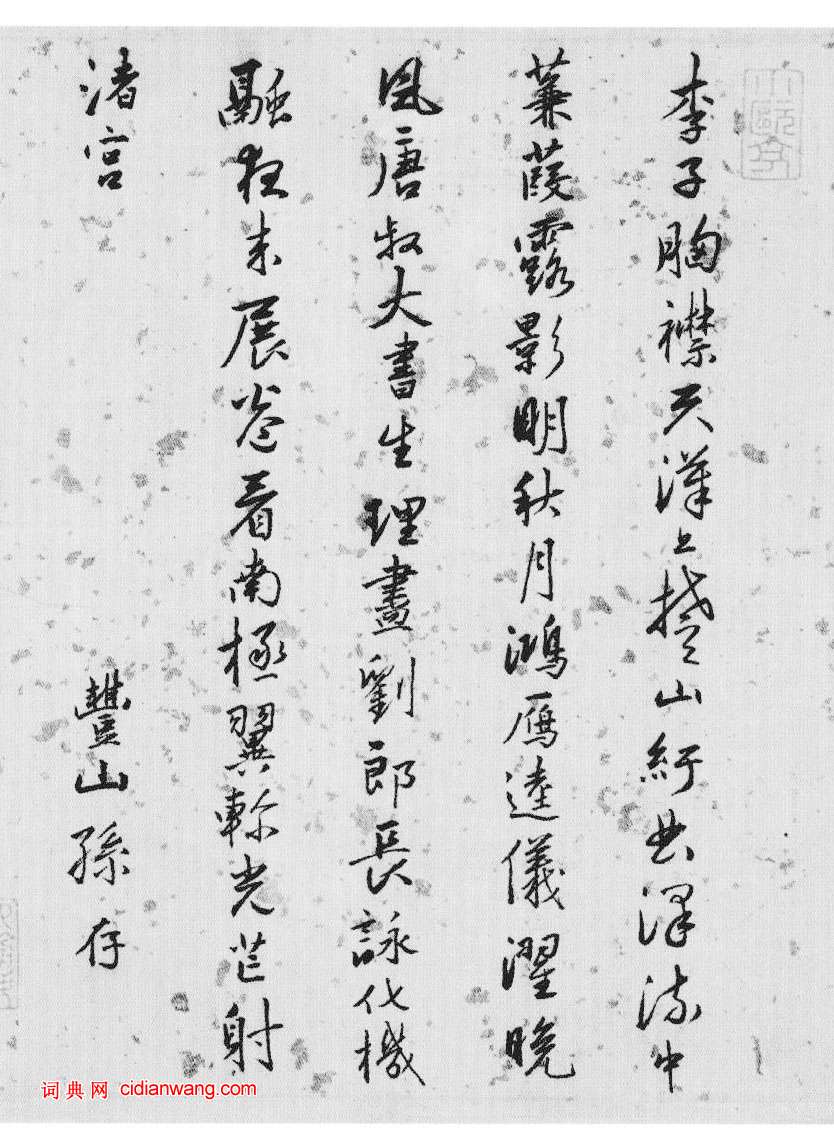 李子胸襟天漢上楚山紆曲澤流中
蒹葭露影明秋月鴻雁逵儀濯晚
風唐叔大書生理畫劉郎長詠化機
融夜來展卷看南極翼軫光芒射
渚宮
豐山孫存
词典网 cidianwang.com